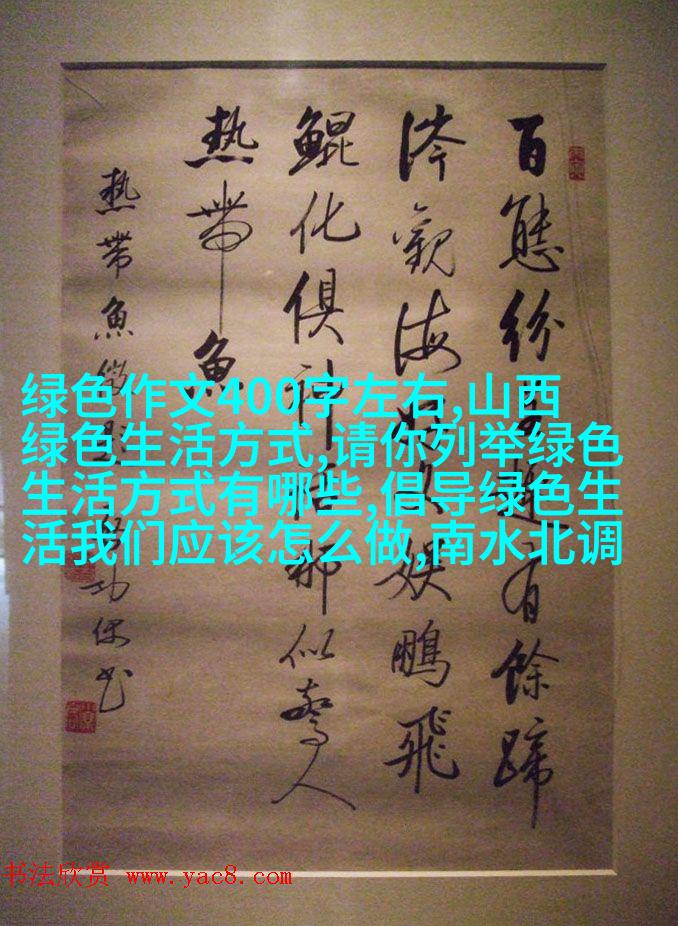 百態紛趣有餘蹄
涔觀海娛鵬飛
鯤化俱神話那似驚人
熱帶魚
熱帶魚
绿色作文400字左右,山西
绿色生活方式,请你列举绿色
生活方式有哪些,倡导绿色生
活我们应该怎么做,南水北调
书法欣赏 www.yac8.com